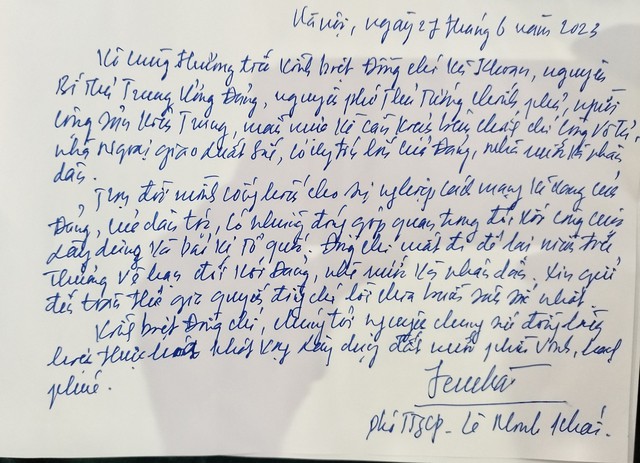 Hà nội, ngày 27 tháng 6 năm 2023
Vô cùng thương tiếc Kính biệt Đồng chí Vũ Khoan, nguyên
Bí thư Trung ương Đảng, nguyên phó Thủ Tướng chính phủ, người
cộng sản Kiên Trung, mẫu mực cần Kiệm liêm chính chí công Vô tư,
nhà ngoại giao xuất sắc, có uy tín lớn của Đảng, nhà nước và nhân
dân.
Trọn đời mình cống hiến cho sự nghiệp cách mạng vẻ vang của
Đảng, của dân tộc, có những đóng góp quan trọng đối với công cuộc
xây dựng và bảo vệ Tổ quốc. Đồng chí mất đi để lại niềm tiếc
thương vô hạn đối với Đảng, nhà nước và nhân dân. Xin gửi
đến toàn thể gia quyến đồng chí lời chia buồn sâu sắc nhất.
Kính biệt Đồng chí, chúng tôi nguyện chung sức đồng lòng
hiện thực hoá khát vọng xây dựng đất nước phồn vinh, hạnh
phúc.
phó TTgCP - Lê Minh Khái.